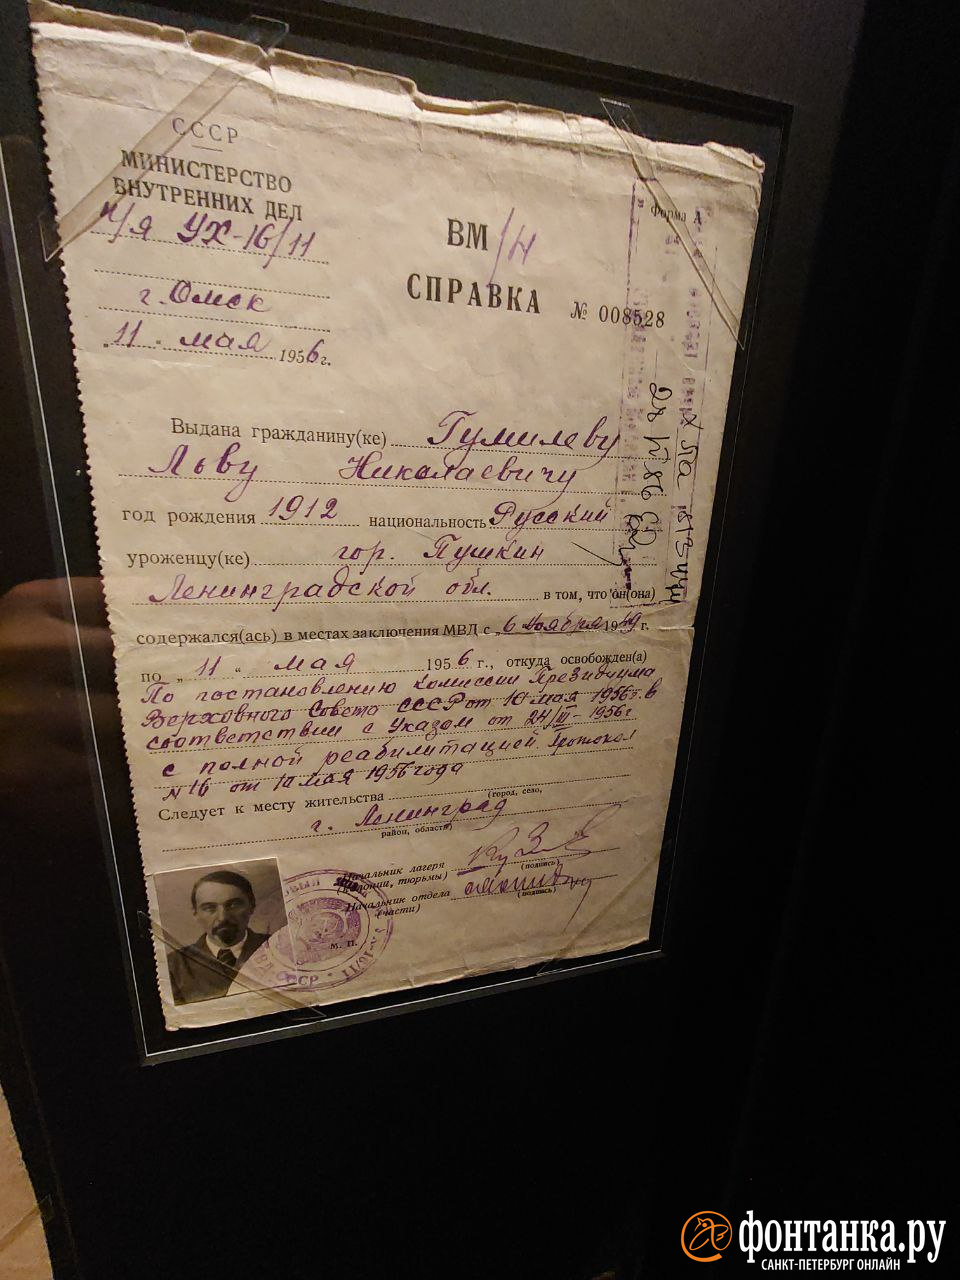 СССР
МИНИСТЕРСТВО
ВНУТРЕННИХ ДЕЛ
п/я УХ-16/11
г. Омск
„11 “ мая 1956 г.
Форма А
ВМ/Н
СПРАВКА № 008528
Выдана гражданину(ке) Гумилеву
Льву Николаевичу
год рождения 1912 национальность Русский
уроженцу(ке) гор. Пушкин
Ленинградской обл. в том, что он(она)
содержался(ась) в местах заключения МВД с „6 ноября 1949 г.
по „11 “ мая 1956 г., откуда освобожден(а)
По постановлению комиссии Президиума
Верховного Совета СССР от 10 мая 1956г. в
соответствии с Указом от 24/III-1956г
с полной реабилитацией. Протокол
N 16 от 10 мая 1956 года
Следует к месту жительства
(город, село,
г. Ленинград
район, область)
Начальник лагеря
(колонии, тюрьмы)
(подпись)
Начальник отдела
(части)
(подпись)
М. П.
СССР
фонтанка.ру
САНКТ-ПЕТЕРБУРГ ОНЛАЙН